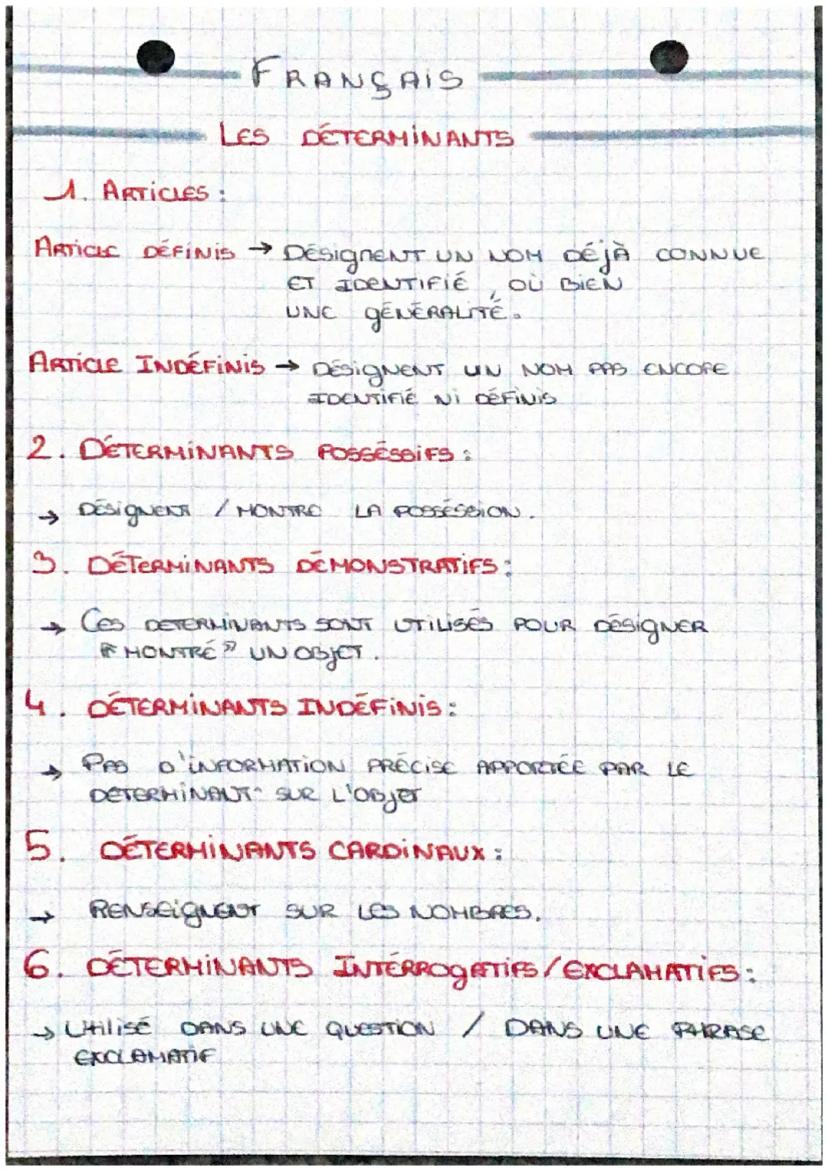 FRANÇAIS
LES DÉTERMINANTS
1. ARTICLES :
ARTICLE DÉFINIS → DÉSIGNENT UN NOM DÉJÀ CONNUE
ET IDENTIFIÉ, OÙ BIEN
UNE GÉNÉRALITÉ.
ARTICLE INDÉFINIS → DÉSIGNENT UN NOM PAS ENCORE
IDENTIFIÉ NI DÉFINIS
2. DÉTERMINANTS POSSÉSSIFS :
→ DÉSIGNENT / MONTRE LA POSSÉSSION.
3. DÉTERMINANTS DÉMONSTRATIFS :
→ CES DETERMINANTS SONT UTILISÉS POUR DÉSIGNER
"MONTRÉ" UN OBJET.
4. DÉTERMINANTS INDÉFINIS :
→ PAS D'INFORMATION PRÉCISE APPORTÉE PAR LE
DETERMINANT SUR L'OBJET
5. DÉTERMINANTS CARDINAUX :
→ RENSEIGNENT SUR LES NOMBRES.
6. DÉTERMINANTS INTÉRROGATIFS / EXCLAMATIFS :
→ UTILISÉ DANS UNE QUESTION / DANS UNE PHRASE
EXCLAMATIF